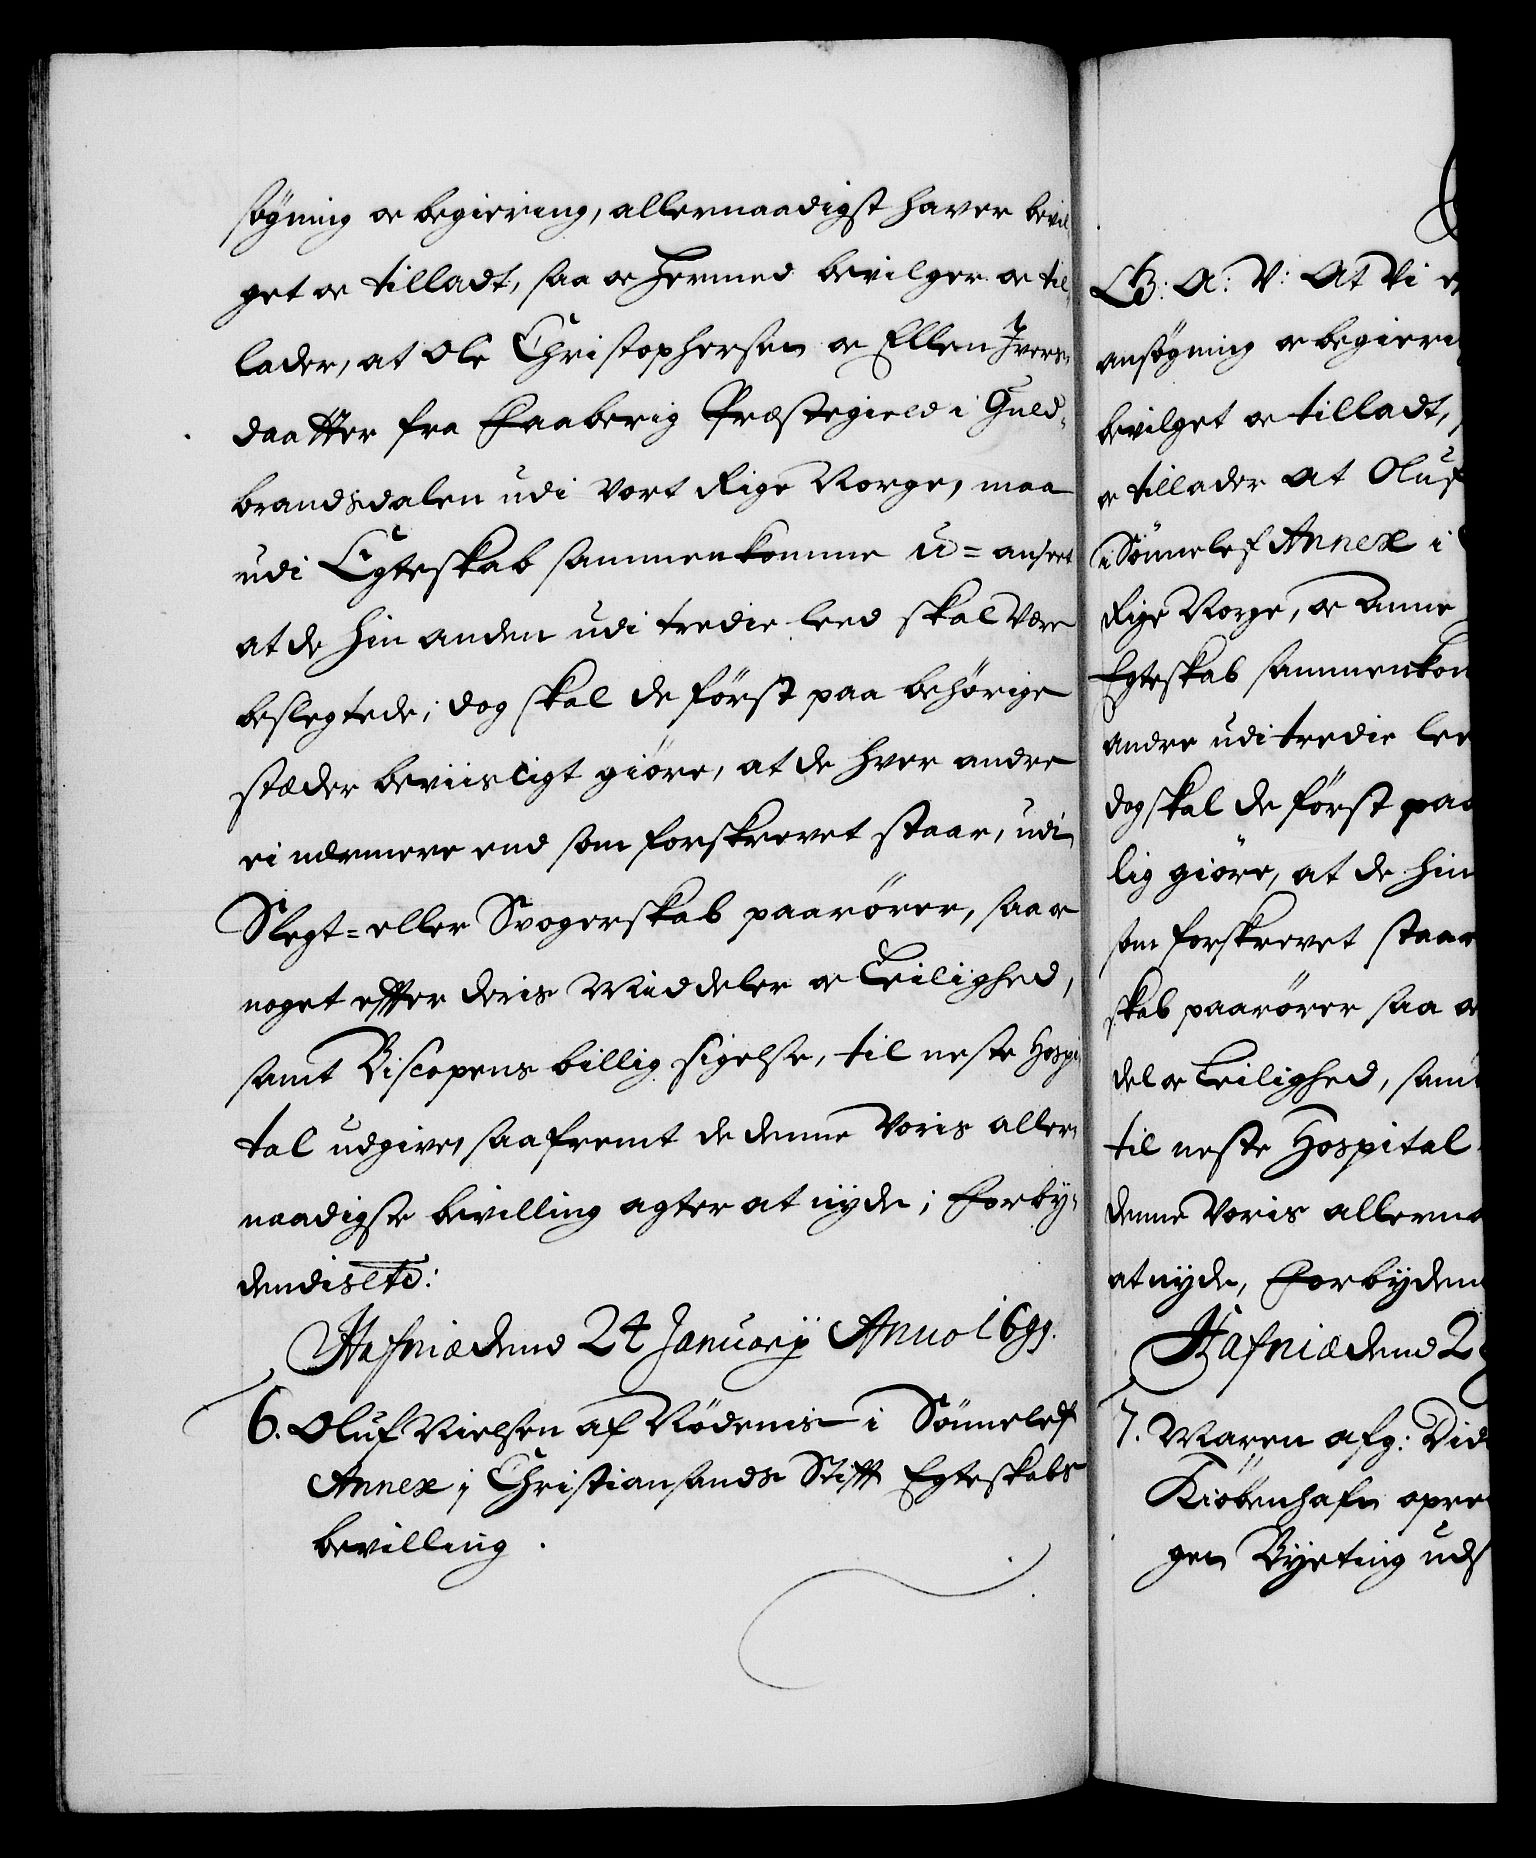 søgning oc begiering, allernaadigst haver bevil-
get oc tilladt, saa oc hermed bevilger oc til-
lader, at Ole Christophersen oc Ellen Ivers-
daatter fra Faaberig Præstegield i Guld-
brandsdalen udi Vort Rige Norge, maa
udi Egteskab sammenkomme u=anseet
at de hin anden udi tredie leed skal være
beslegtede; dog skal de först paa behörige
stæder beviisligt giöre, at de hver andre
ei nærmere end som forskrevet staar, udi
Slegt= eller Svogerskab paarörer, saa oc
noget efter deris Middeler oc Leilighed,
samt Biscopens billig sigelse, til neste Hospi-
tal udgive, saafremt de denne Voris aller-
naadigste bevilling agter at nyde; Forby-
dendis etc:
Hafniæ dend 24 January Anno 1699.
6. Oluf Nielsen af Rödenis i Sönnelef
Annex i Christiansands Stift Egteskabs
bevilling.
C5: A: V: At Vi e
ansøgning oc begieri
bevilget oc tilladt,
oc tillader at Oluf
i Sönnelef Annex i
Rige Norge, oc Anne
Egteskab sammenkom
andre udi tredie lee
dog skal de först paa
lig giöre, at de hin
som forskrevet staar
skab paarörer saa oc
del oc Leilighed, samt
til neste Hospital
denne Voris allerna
at nyde, Forbyden
Hafniæ dend 2
7. Maren afg: Did
Kiöbenhafn opre
gen Byeting uds